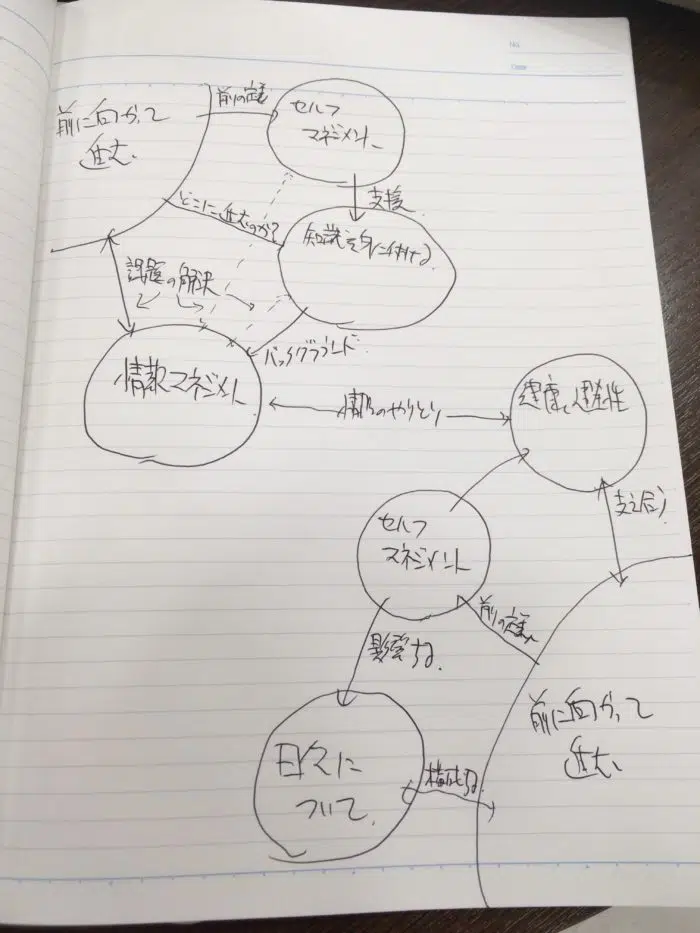 No.
Date
前に向かって
進む、
前の定義
セルフ
マネジメント、
支援
どこに進むのか?
知識を身に付ける
課題の解決
バックグラウンド
情報マネジメント
情報のやりとり
健康
セルフ
マネジメント
支え合う
前の定義
影響する。
前に向かって
進む、
について
構成する